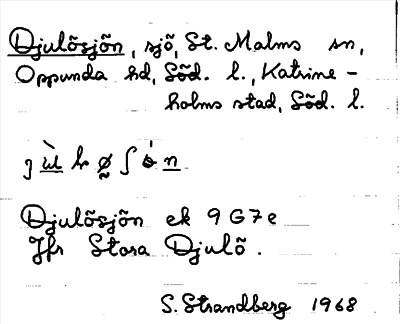 Djulösjön, sjö, St. Malms sn,
Oppunda hd, Söd. l., Katrine-
holms stad, Söd. l.
Djulösjön ek 9G7e
Jfr Stora Djulö.
S. Strandberg 1968